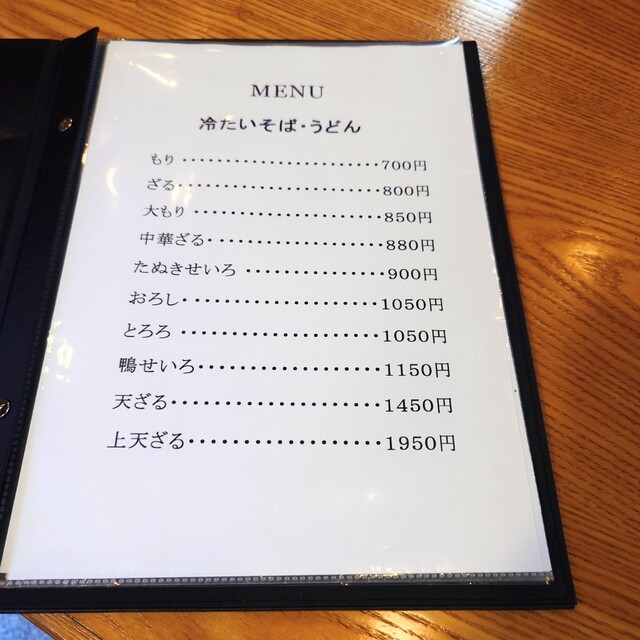 MENU
冷たいそば・うどん
もり・・・・・・・・・・・・・・・・・・・・・・・700円
ざる・・・・・・・・・・・・・・・・・・・・・・・800円
大もり・・・・・・・・・・・・・・・・・・・・・850円
中華ざる・・・・・・・・・・・・・・・・・・・880円
たぬきせいろ・・・・・・・・・・・・・・・900円
おろし・・・・・・・・・・・・・・・・・・・・1050円
とろろ・・・・・・・・・・・・・・・・・・・・1050円
鴨せいろ・・・・・・・・・・・・・・・・・・1150円
天ざる・・・・・・・・・・・・・・・・・・・・1450円
上天ざる・・・・・・・・・・・・・・・・・・1950円